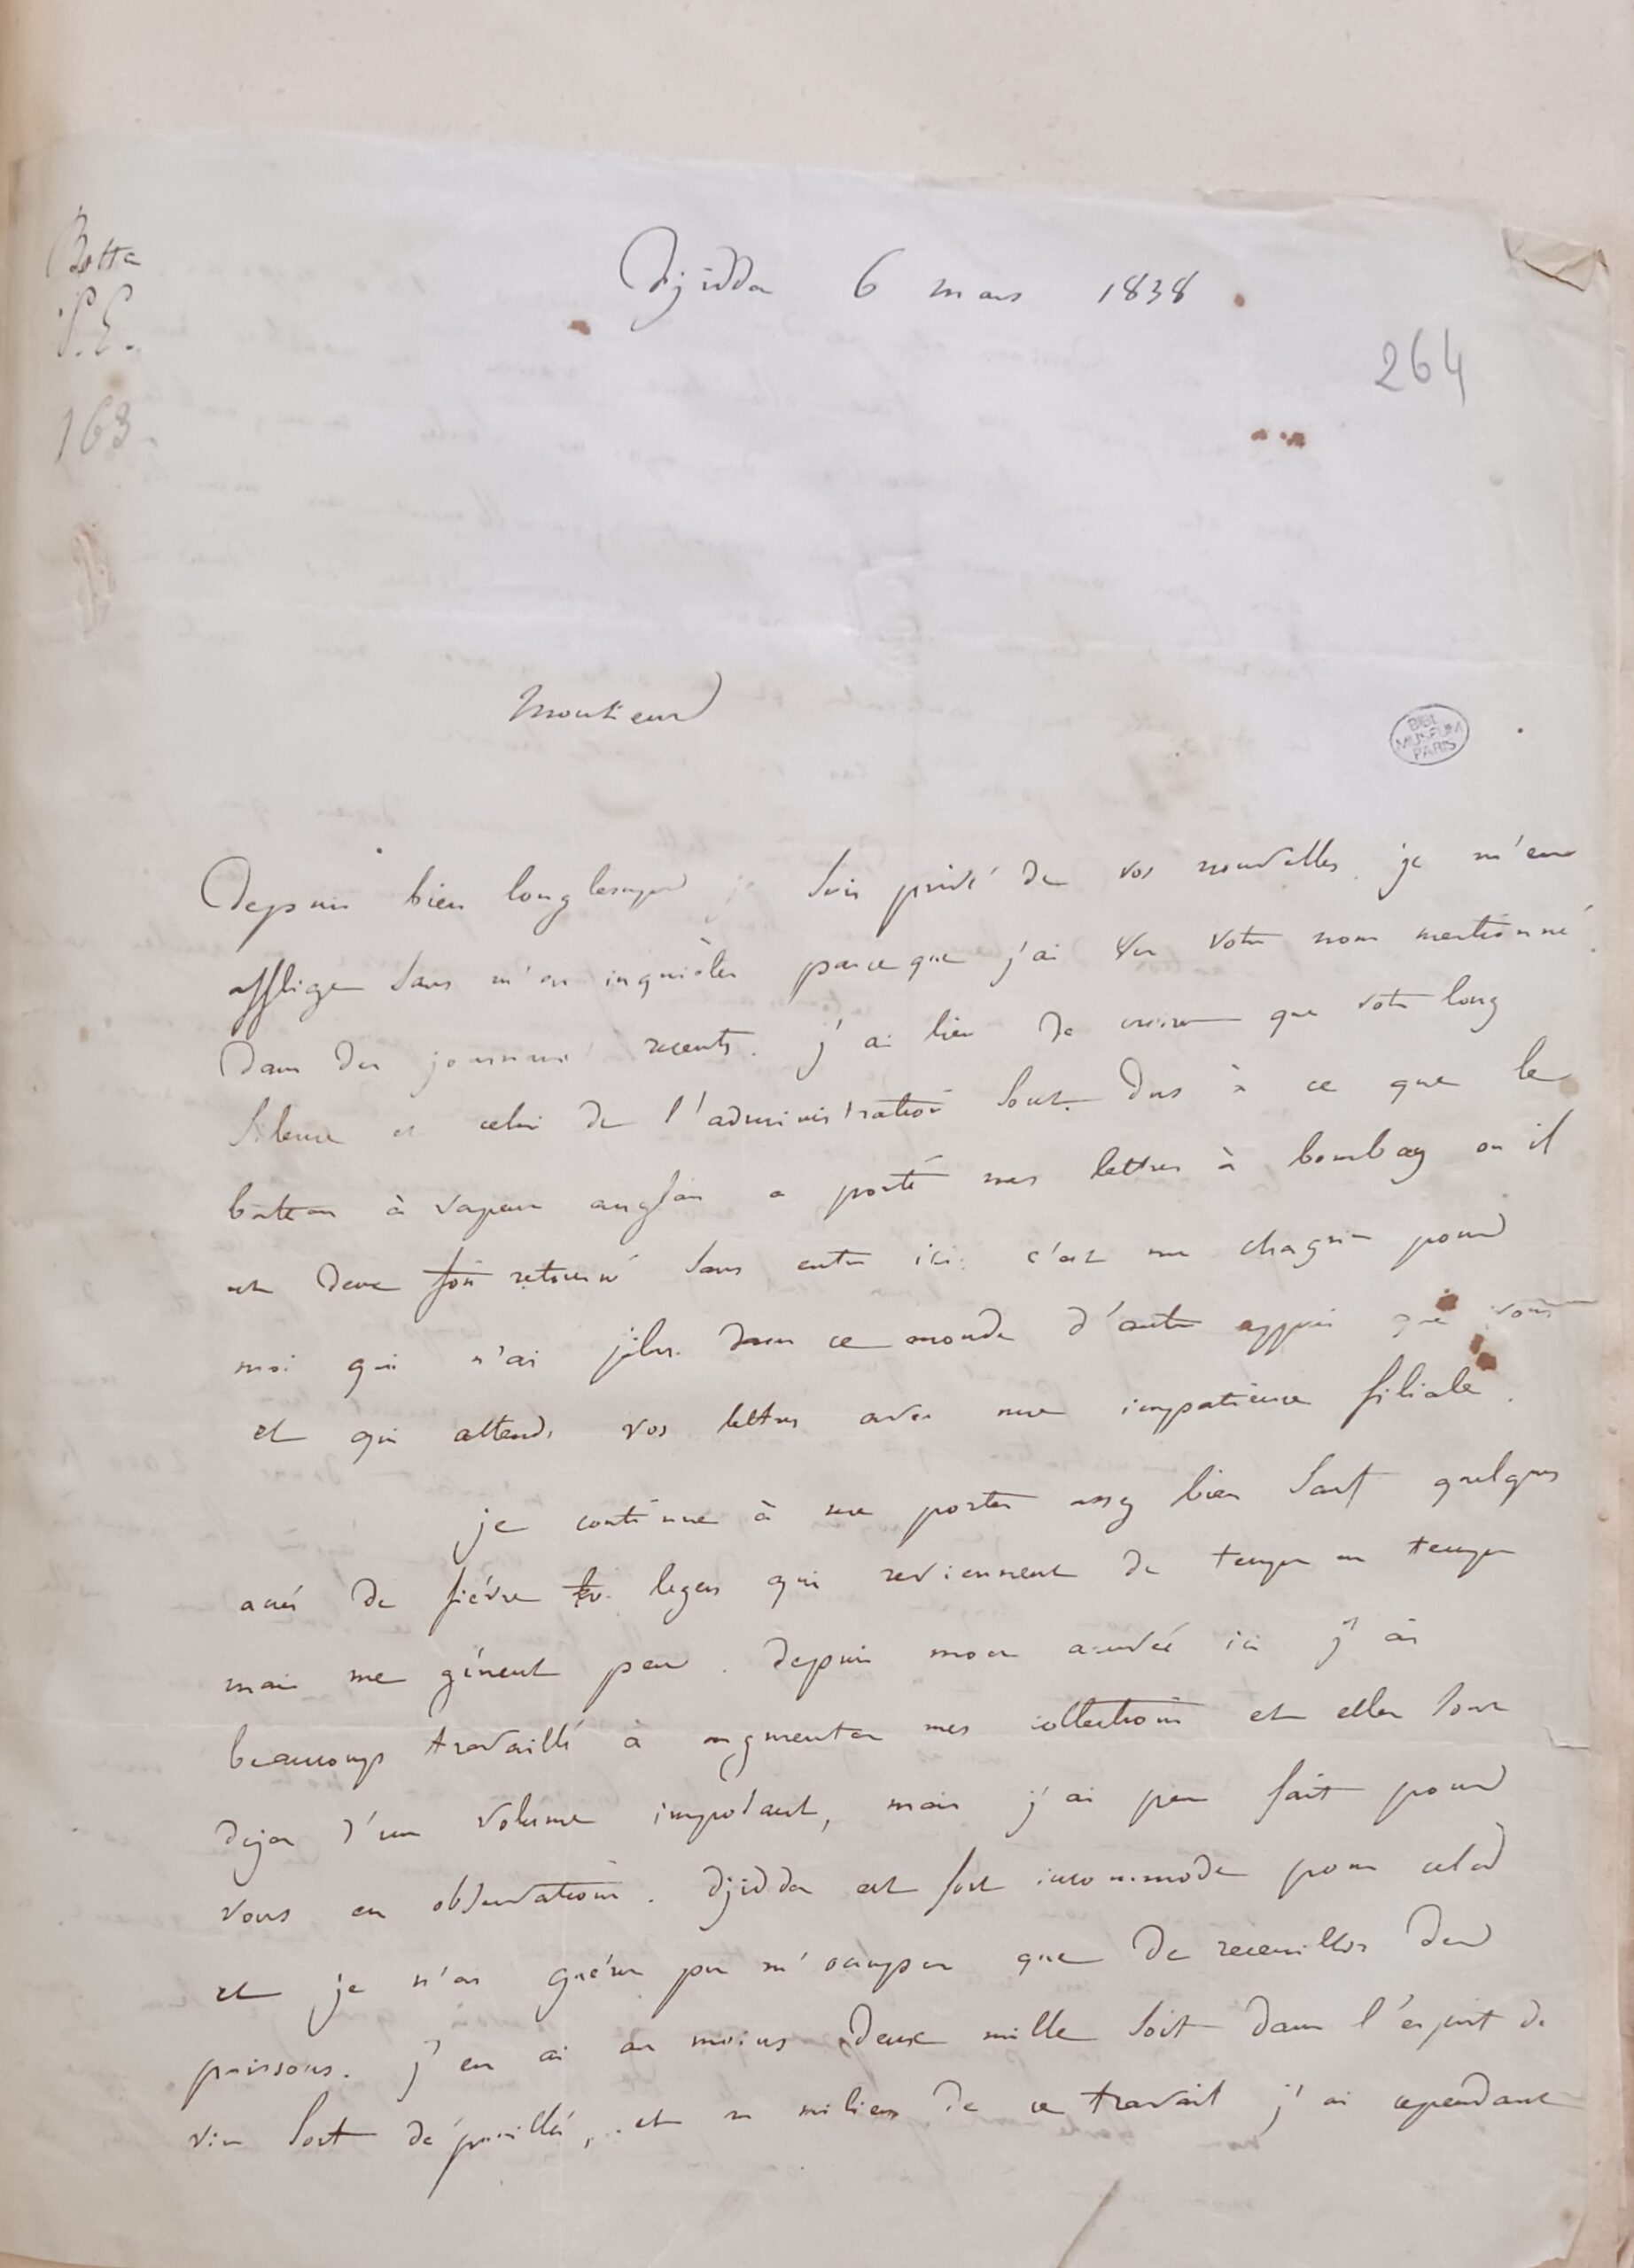 Botta
P. E.
163.
Djidda 6 mars 1838
264
Monsieur
BIBL
MUSEUM
PARIS
Depuis bien longtemps je suis privé de vos nouvelles je m'en
afflige sans m'en inquiéter parceque j'ai vu votre nom mentionné
dans des journaux recents. j'ai lieu de croire que votre long
silence et celui de l'administration sont dus à ce que le
bateau à vapeur anglais a porté mes lettres à bombay ou il
est deux fois retourné sans entrer ici. c'est un chagrin pour
moi qui n'ai plus dans ce monde d'autre appui que vous
et qui attends vos lettres avec une impatience filiale.
je continue à me porter assez bien sauf quelques
accès de fièvre legers qui reviennent de temps en temps
mais me gênent peu. depuis mon arrivée ici j'ai
beaucoup travaillé à augmenter mes collections et elles sont
deja d'un volume important, mais j'ai peu fait pour
vous en observations. djidda est fort incommode pour cela
et je n'ai guére pu m'occuper que de receuillir des
poissons. j'en ai au moins deux mille soit dans l'esprit de
vin soit dépouillés, et au milieu de ce travail j'ai cependant